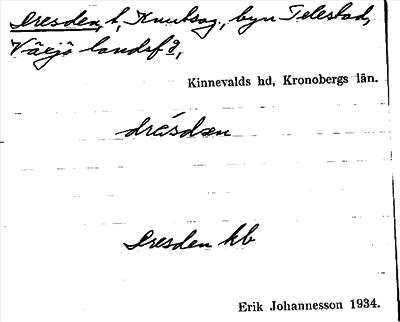 Dresden, t, Knutsag., byn Telestad,
Växjö landsf
Kinnevalds hd, Kronobergs län.
drésdæn
Dresden kb
Erik Johannesson 1934.